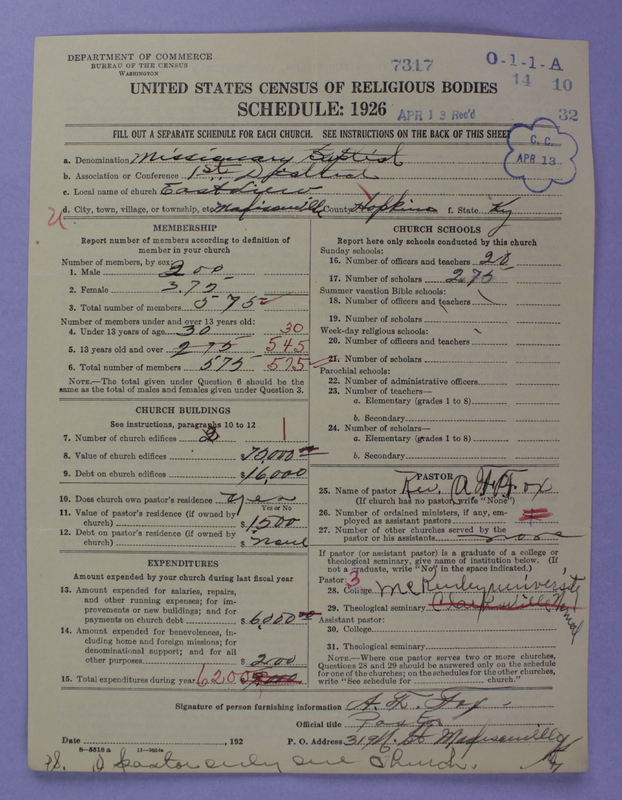 DEPARTMENT OF COMMERCE
BUREAU OF THE CENSUS
WASHINGTON
7317
O-1-1-A
14 10
UNITED STATES CENSUS OF RELIGIOUS BODIES
SCHEDULE: 1926
APR 13 Rec'd
32
FILL OUT A SEPARATE SCHEDULE FOR EACH CHURCH. SEE INSTRUCTIONS ON THE BACK OF THIS SHEET
C. C.
APR 13
a. Denomination Missionary Baptist
b. Association or Conference 1st District
c. Local name of church East View
d. City, town, village, or township, etc. Madisonville County Hopkins f. State Ky
MEMBERSHIP
Report number of members according to definition of
member in your church
Number of members, by sex:
1. Male 200
2. Female 375
3. Total number of members 575
Number of members under and over 13 years old:
4. Under 13 years of age 30 30
5. 13 years old and over 275 545
6. Total number of members 575 575
NOTE.—The total given under Question 6 should be the
same as the total of males and females given under Question 3.
CHURCH BUILDINGS
See instructions, paragraphs 10 to 12
7. Number of church edifices 1
8. Value of church edifices $70,000
9. Debt on church edifices $16,000
10. Does church own pastor's residence yes
Yes or No
11. Value of pastor's residence (if owned by
church) $1500
12. Debt on pastor's residence (if owned by
church) $ none
EXPENDITURES
Amount expended by your church during last fiscal year
13. Amount expended for salaries, repairs,
and other running expenses; for im-
provements or new buildings; and for
payments on church debt $6,000
14. Amount expended for benevolences, in-
cluding home and foreign missions; for
denominational support; and for all
other purposes $200
15. Total expenditures during year 6200
CHURCH SCHOOLS
Report here only schools conducted by this church
Sunday schools:
16. Number of officers and teachers 28
17. Number of scholars 275
Summer vacation Bible schools:
18. Number of officers and teachers
19. Number of scholars
Week-day religious schools:
20. Number of officers and teachers
21. Number of scholars
Parochial schools:
22. Number of administrative officers
23. Number of teachers—
a. Elementary (grades 1 to 8)
b. Secondary
24. Number of scholars—
a. Elementary (grades 1 to 8)
b. Secondary
PASTOR
25. Name of pastor Rev. A. W. Fox
(If church has no pastor, write "None")
26. Number of ordained ministers, if any, em-
ployed as assistant pastors
27. Number of other churches served by the
pastor or his assistants none
If pastor (or assistant pastor) is a graduate of a college or
theological seminary, give name of institution below. (If
not a graduate, write "No" in the space indicated.)
Pastor: 3
28. College McKenley university
29. Theological seminary Clarksville
Assistant pastor:
30. College
31. Theological seminary
NOTE.—Where one pastor serves two or more churches,
Questions 28 and 29 should be answered only on the schedule
for one of the churches; on the schedules for the other churches,
write "See schedule for church."
Signature of person furnishing information Fox
Official title Pastor
Date , 192
P. O. Address 319 Madisonville Ky
8—5518 a
pastor only one church.